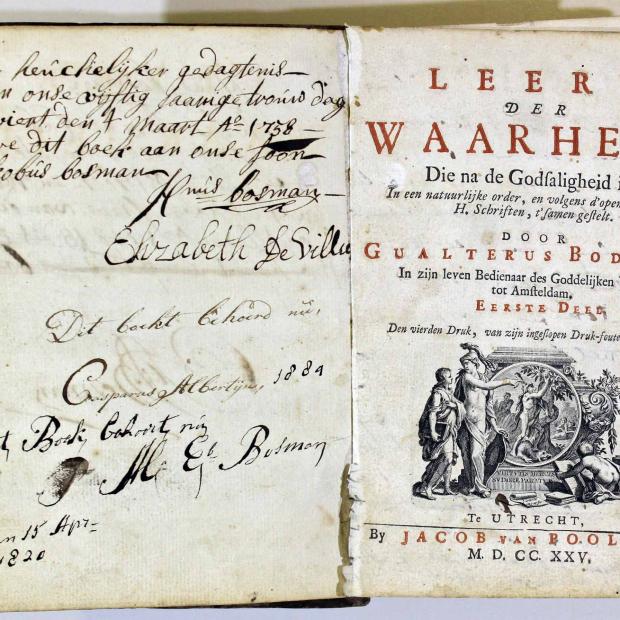 heuchelijker gedagtenis
n onse vijftig jaarige trouw dag
viert den 4 Maart Ao 1738
dit boek aan onse soon
obus bosman
bosman
Elizabeth De Villie
Dit boekt behoord nu,
Casparus Albertijn, 1884
Boek behoort nu
Bosman
n 15 Apr
1820
LEER
DER
WAARHE
Die na de Godsaligheid i
In een natuurlijke order, en volgens d'open
H. Schriften, t'samen gestelt.
DOOR
GUALTERUS BOD
In zijn leven Bedienaar des Goddelijken
tot Amsteldam.
EERSTE DEEL
Den vierden Druk, van zijn ingeslopen Druk-foute
Te UTRECHT,
By JACOB van POOL
M. D. CC. XXV.